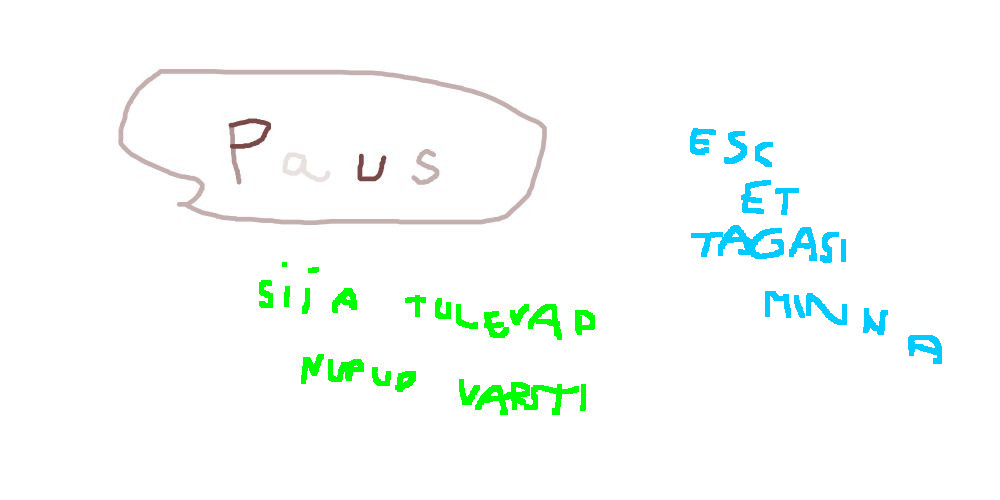 Paus
ESC
ET
TAGASI
MINNA
SIJA TULEVAD
NUPUD VARSTI